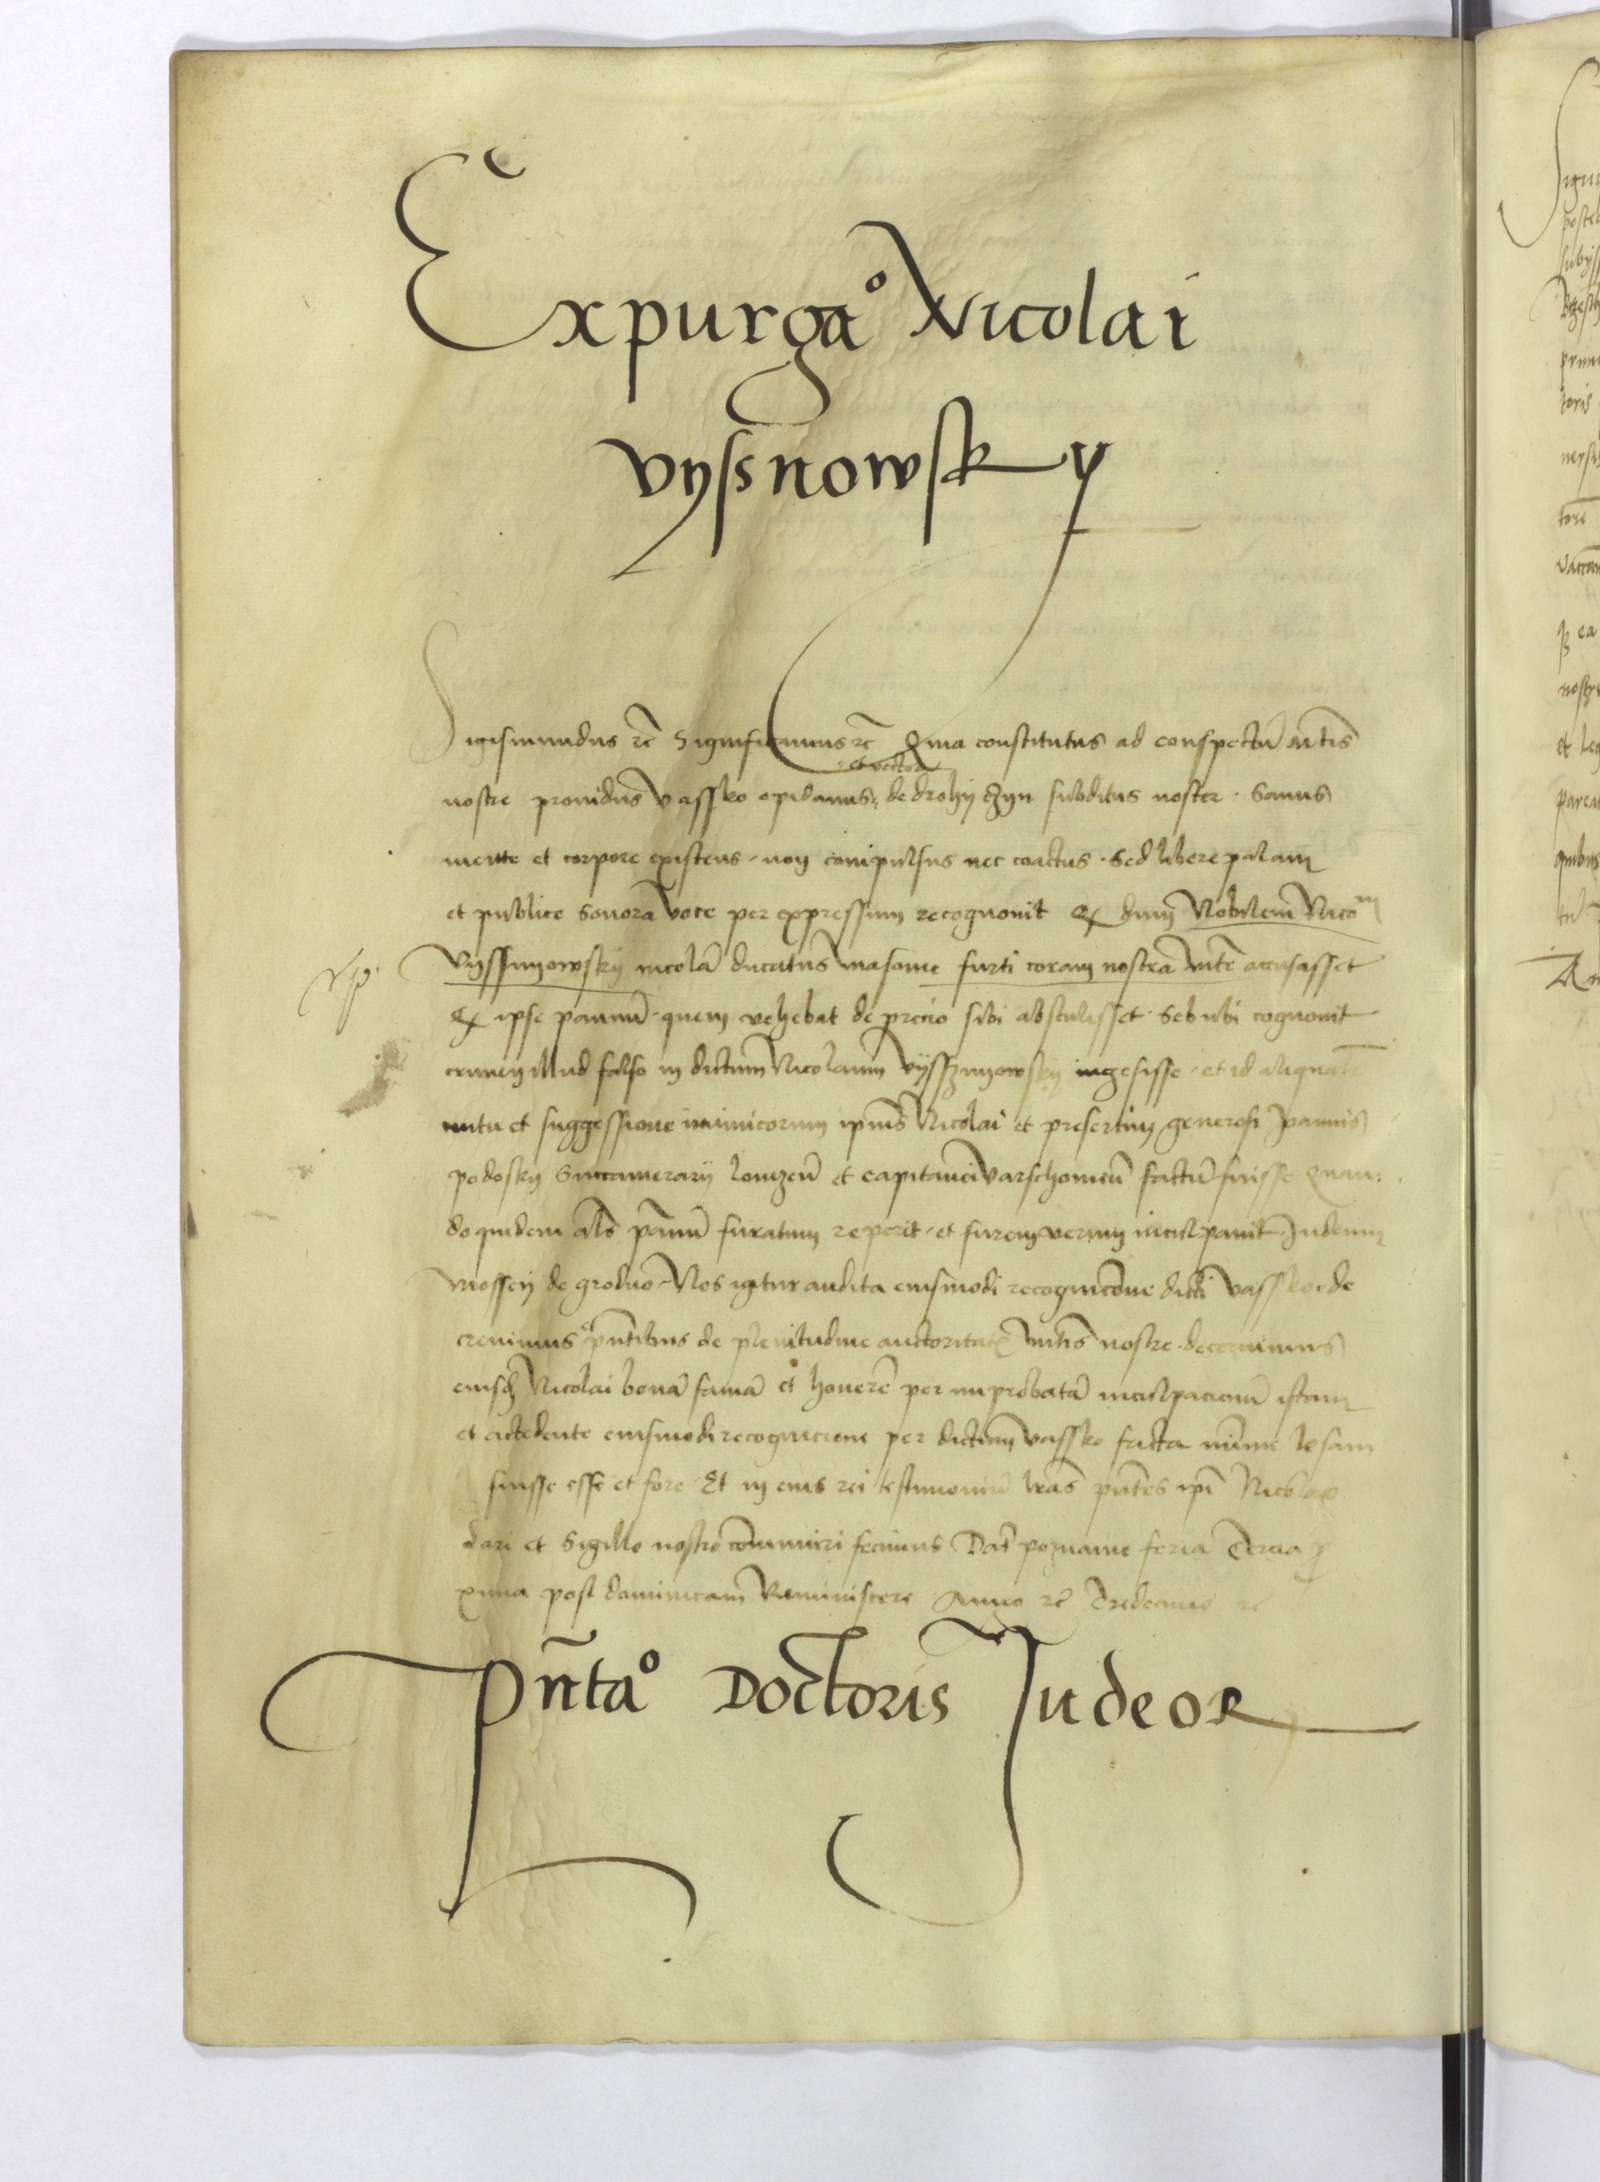 Expurgaᵒ Nicolai
vyssnowsky
Sigismundus rē Significamus rē Quia constitutus ad conspectū mtīs
et vector
nostre providus vassko opidanus de drohyczyn subditus noster · Sanus
mente et corpore existens · non compulsus nec coactus · Sed libere palam
et publice sonora voce per expressum recognovit Qz dum Nobilem Nicoᵐ
Vyssmowsky incolā ducatus masovie furti coram nostra mte accusasset
Qz ipse pannū · quem vehebat de precio sibi abstulisset · Sed ubi cognovit
crimen illud falso in dictum Nicolaum vysszmowsky ingesisse · et id
nutu et suggessione inimicorum ipius Nicolai et presertim generosi Joannis
podosky Succamerarii lomzeñ et capitanei varschovieñ factū fuisse Quan:
do quidem als pannū furatum reperit · et furem verum inculpavit Judeum
mossey de grodno · Nos igitur audita eiusmodi recognicõne dicti vassko de
crevimus pñtibus de plenitudine auctoritatis mtis nostre decernimus
eiusdē Nicolai bonā famā et honorē per improbatā inculpacionē istam
et accedente eiusmodi recognicione per dictum vassko facta nime lesam
fuisse esse et fore Et in cuius rei testimoniū lras pñtes ipi Nicolao
dari et Sigillo nostro cõmuniri fecimus Dat poznanie feria tercia p
xima post dominicam Reminiscere Anno rē tredecimo rē
pñtaᵒ Doctoris Judeoꝝ